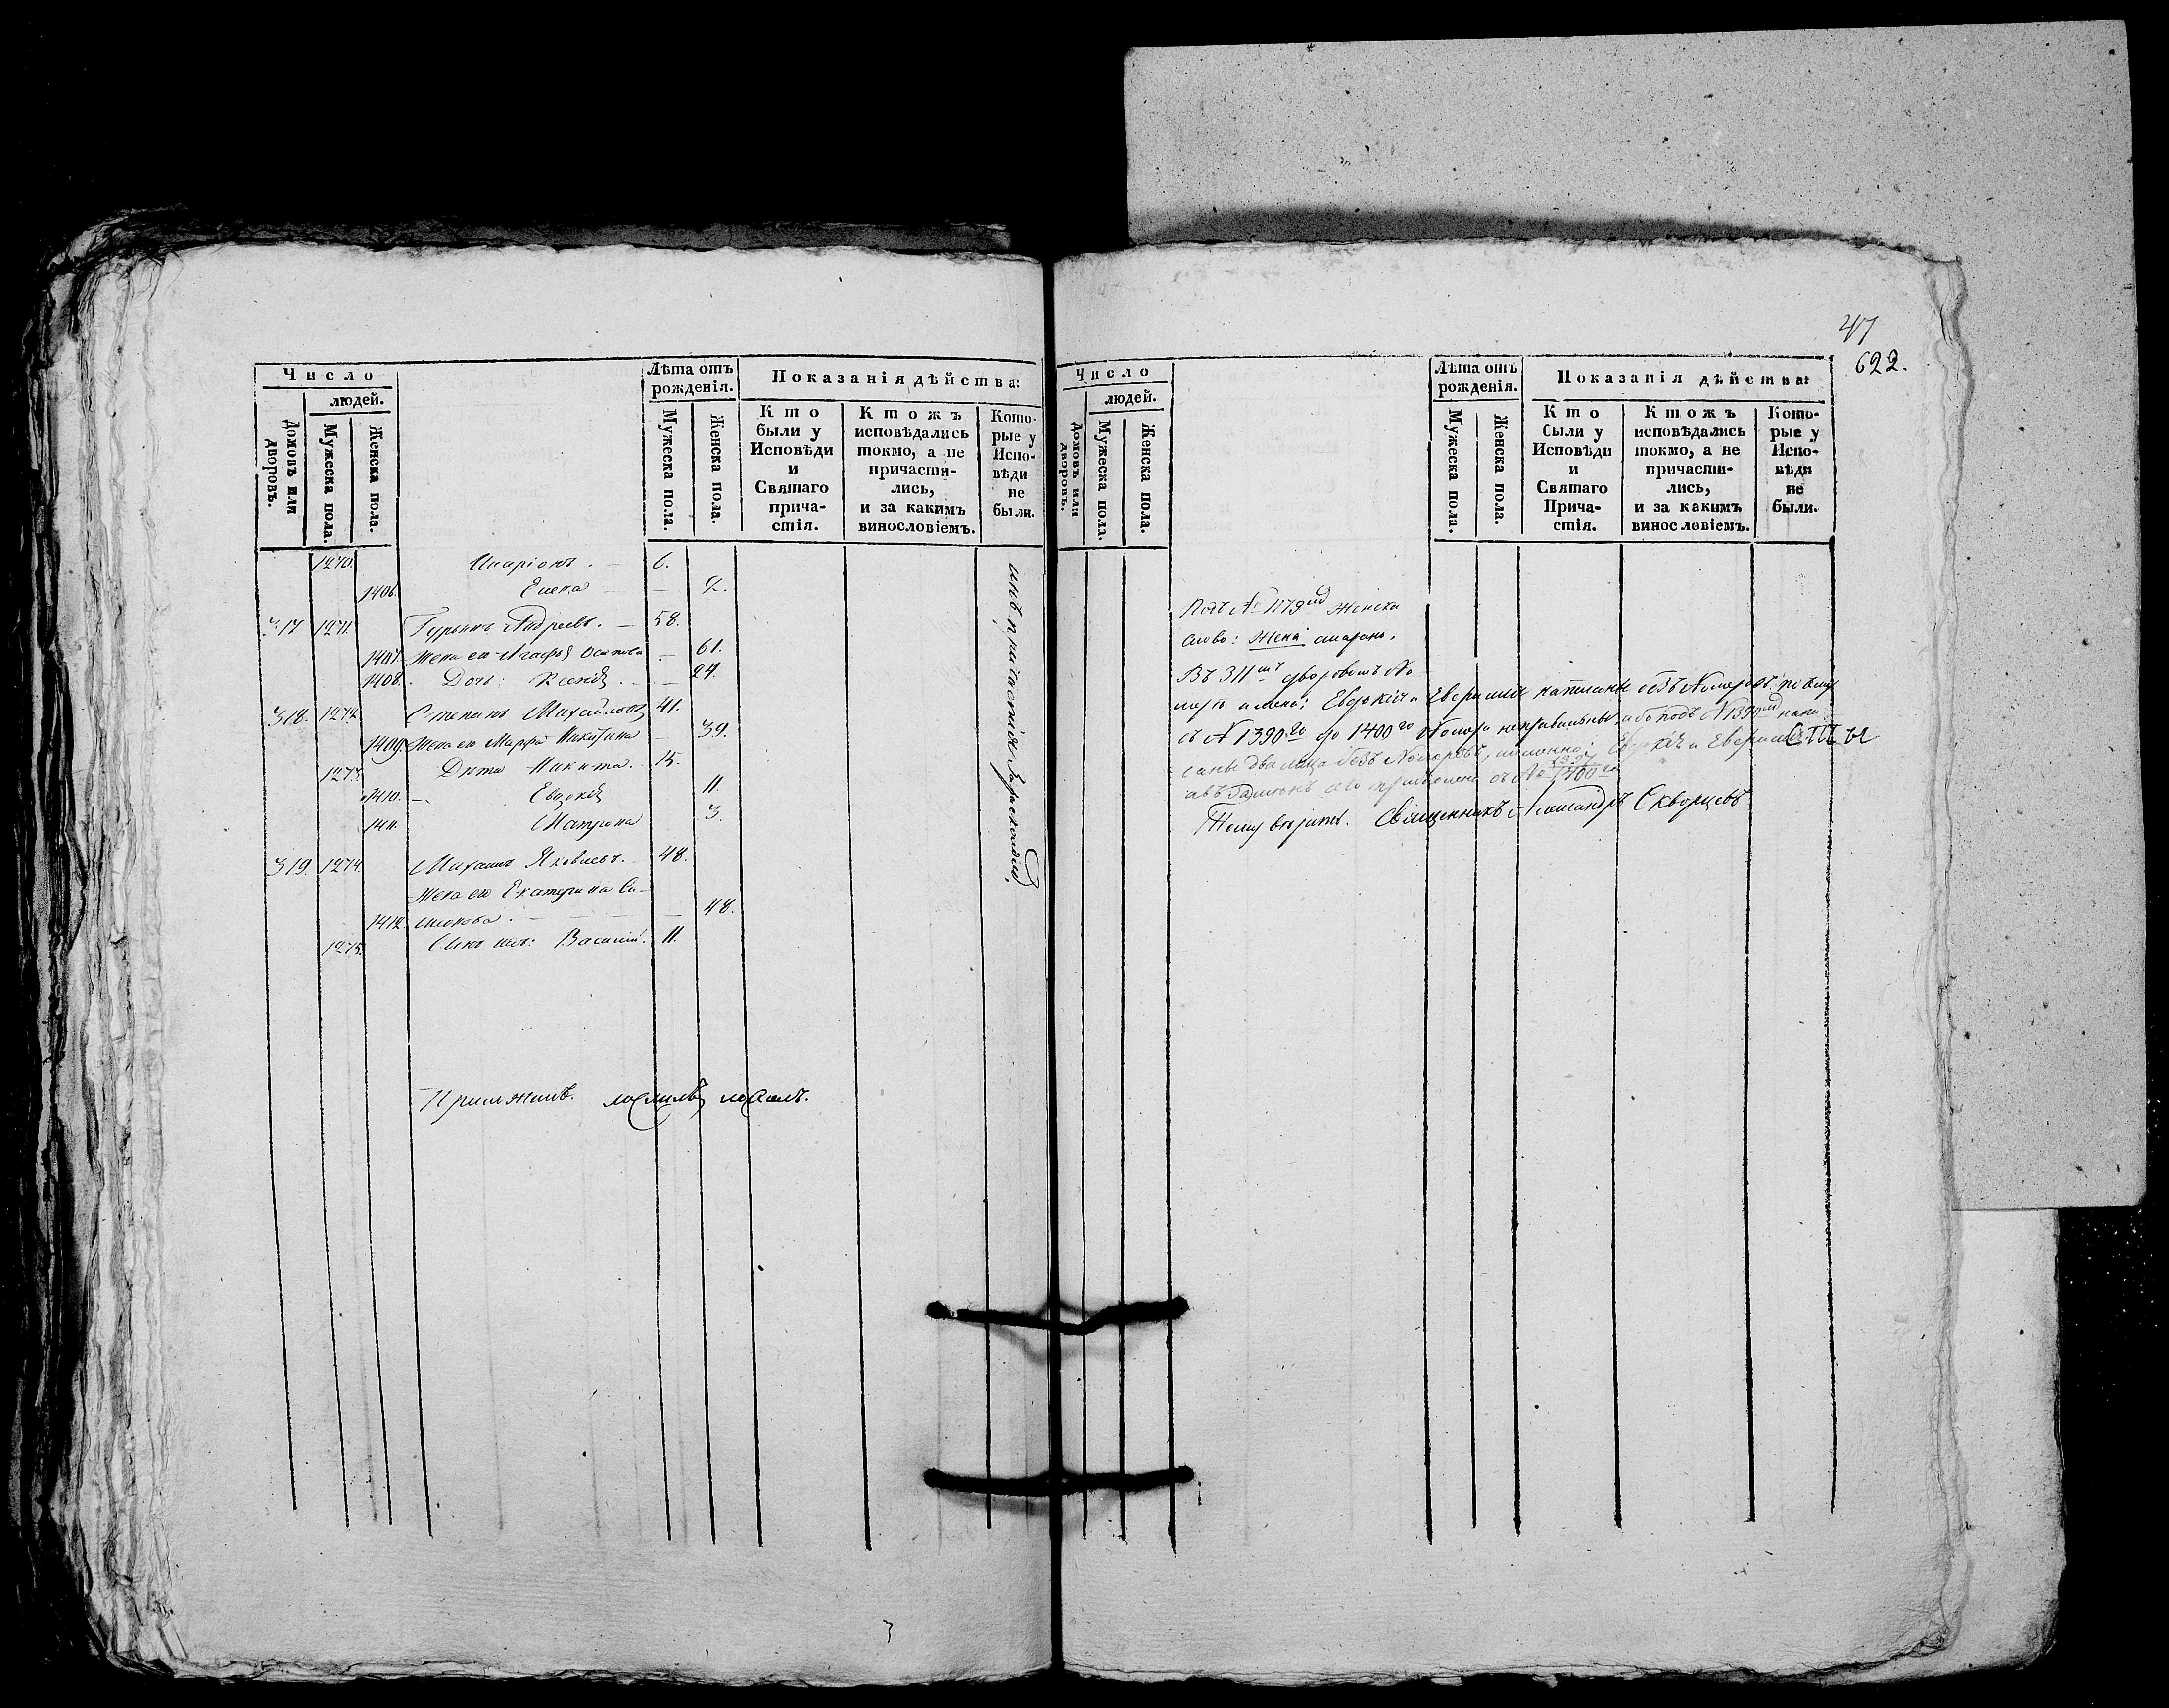 Число
людей.
Домовъ или дворовъ.
Мужеска пола.
Женска пола.
Лѣта отъ рожденія.
Мужеска пола.
Женска пола.
Показанія дѣйства:
Кто были у Исповѣди и Святаго прича-стія.
Ктожъ исповѣдались токмо, а не причасти-лись, и за какимъ винословіемъ.
Кото-рые у Испо-вѣди не были.
1270. Иларіонъ. 6.
1406. Елена 2.
317 1271. Гурьянъ Андреевъ. 58.
1407. Жена его Агафья Осипова 61.
1408. Дочь: Ксенія 24.
318. 1272. Степанъ Михайловъ 41.
1409. Жена его Марфа Никитина 39.
1273. Дѣти Никита. 15.
1410. Евдокія 11.
1411. Матрона 3.
319. 1274. Михаилъ Яковлевъ. 48.
Жена его Екатерина Си-
1412. меонова. 48.
1275. Сынъ ихъ: Василій. 11.
47
622.
Число
людей.
Домовъ или дворовъ.
Мужеска пола.
Женска пола.
Лѣта отъ рожденія.
Мужеска пола.
Женска пола.
Показанія дѣйства:
Кто были у Исповѣди и Святаго Прича-стія.
Ктожъ исповѣдались токмо, а не причасти-лись, и за какимъ винословіемъ.
Кото-рые у Испо-вѣди не были.
Подъ № 1179 женска
слово: жена
Въ 311 дворовомъ №
имена: Евдокія и написаны безъ Номеровъ
съ № 1390го до 1400го Номера неправильны, ибо подъ № 1390 напи-
саны два лица безъ Номеровъ, именно: Евдокія и
съ № 1400го
Священникъ Александръ Скворцевъ